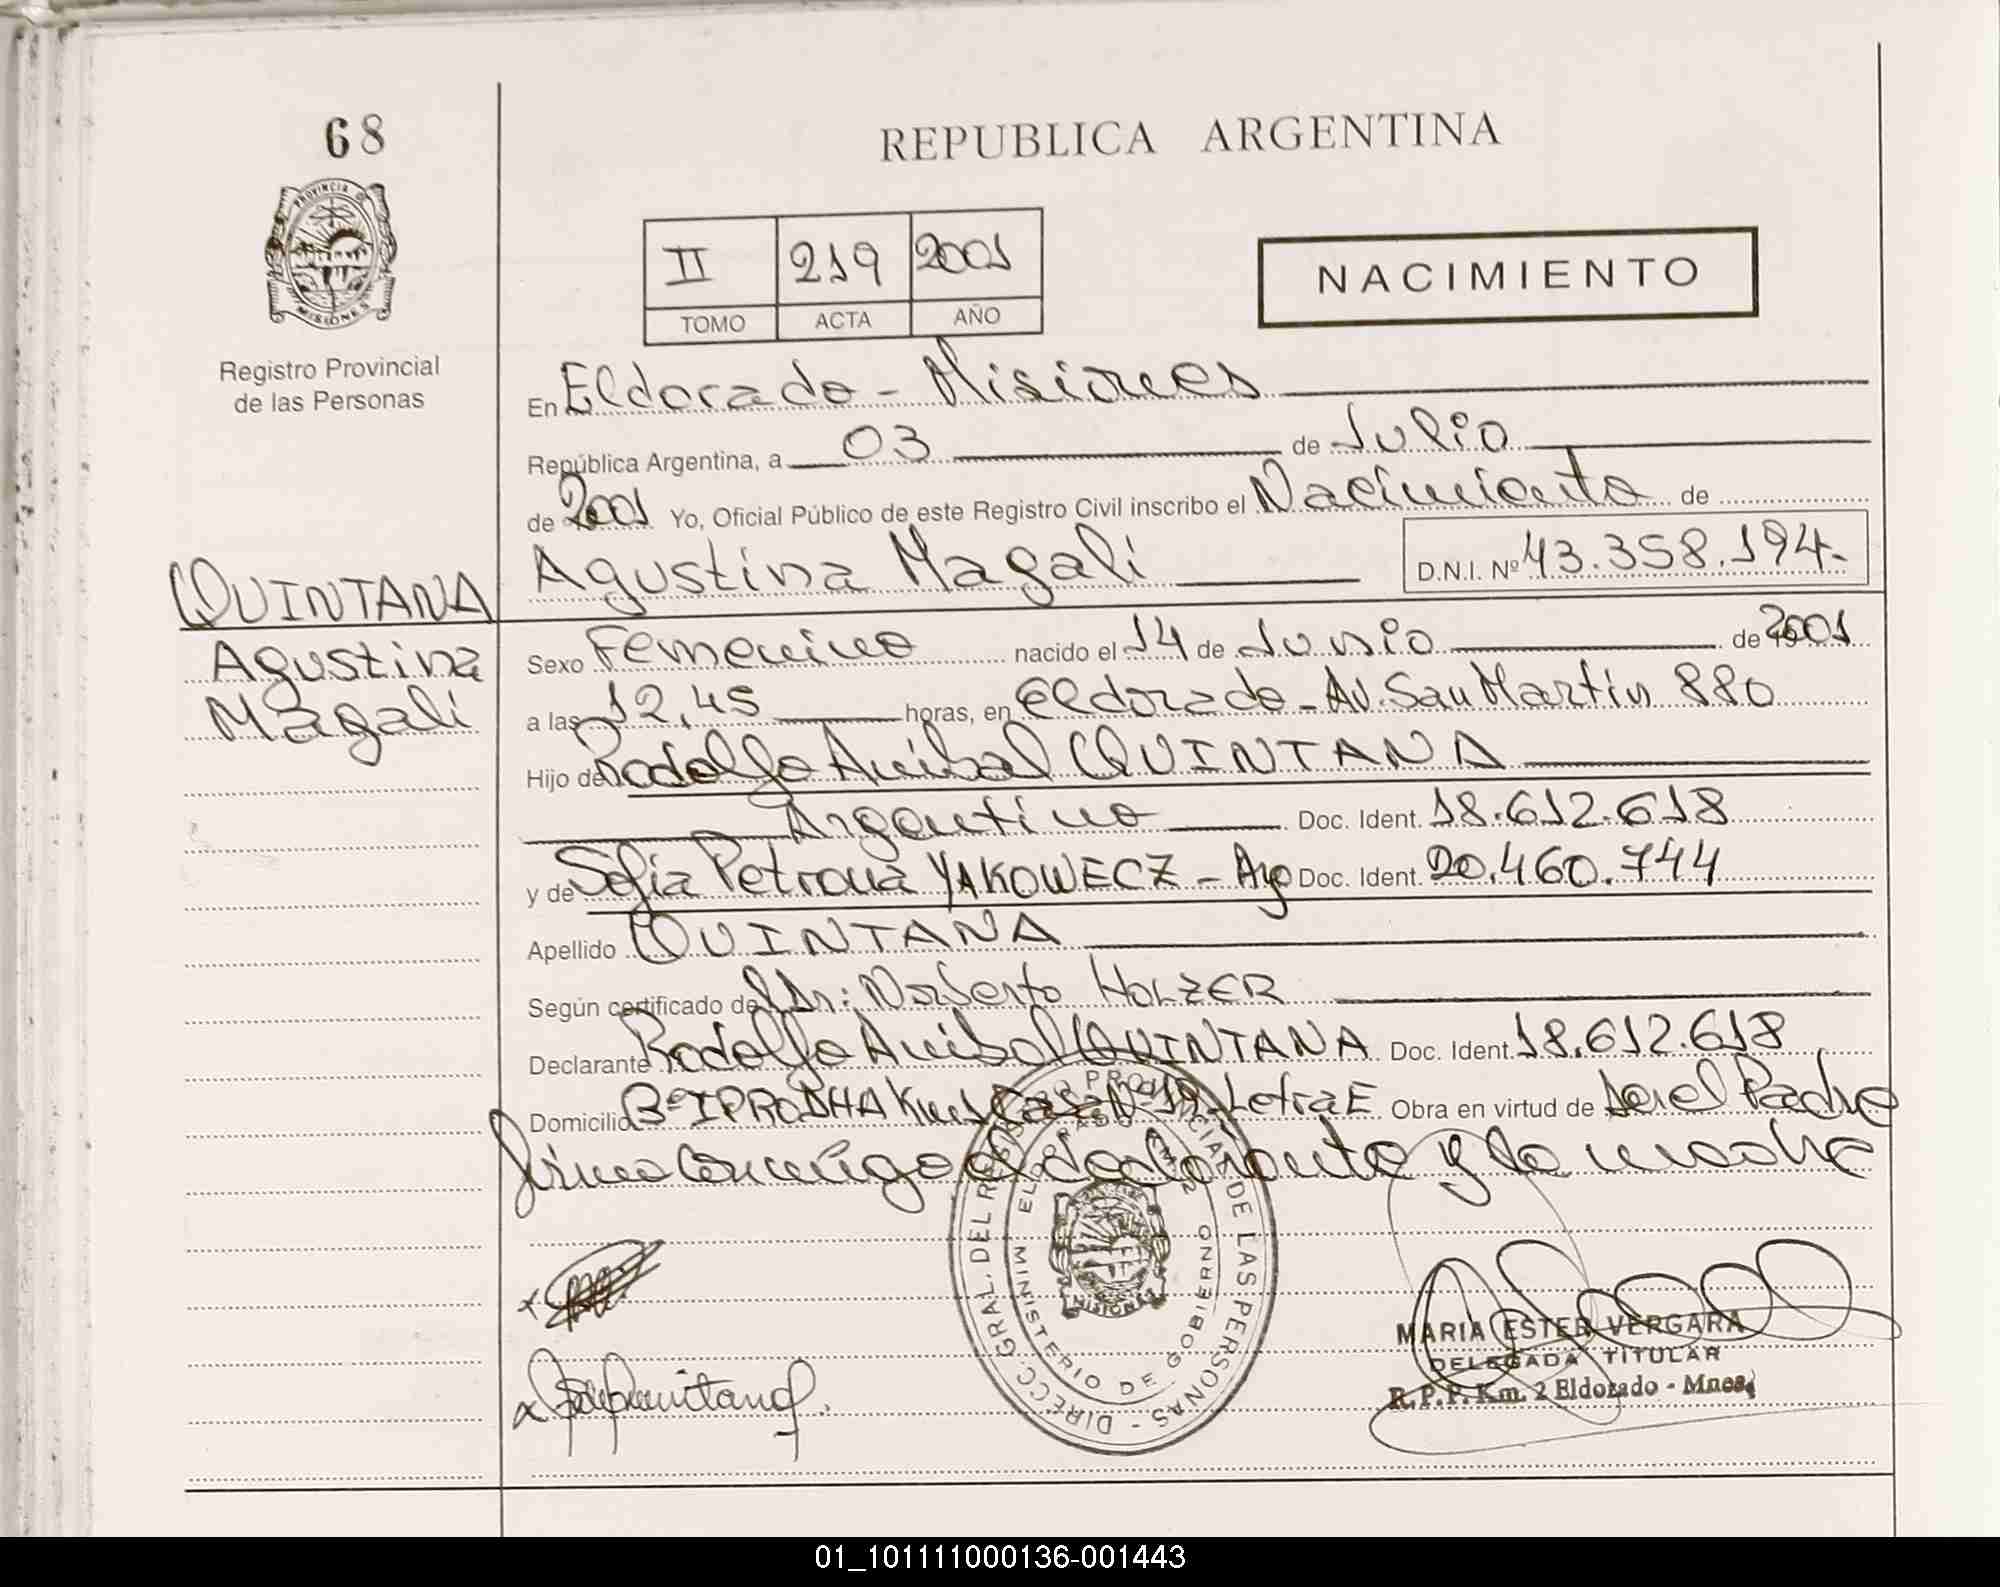 68
PROVINCIA D
MISIONES
Registro Provincial
de las Personas
REPUBLICA ARGENTINA
II 219 2001
TOMO ACTA AÑO
NACIMIENTO
En Eldorado - Misiones
República Argentina, a 03 de Julio
de 2001 Yo, Oficial Público de este Registro Civil inscribo el Nacimiento de
Agustina Magali D.N.I. Nº 43.358.194.-
QUINTANA
Agustina
Magali
Sexo Femenino nacido el 14 de Junio de 2001
a las 12,45 horas, en Eldorado - Av. San Martin 880
Hijo de Rodolfo Anibal QUINTANA
Argentino Doc. Ident. 18.612.618
y de Sofia Petrona YAKOWECZ - Doc. Ident. 20.460.744
Apellido QUINTANA
Según certificado del Dr: Norberto HOLZER
Declarante Rodolfo Anibal QUINTANA Doc. Ident. 18.612.618
Domicilio Bº IPRODHA Casa Nº 19 Letra E Obra en virtud de ser el Padre
firma conmigo el declarante y la madre
DIRECC. GRAL. DEL REGISTRO PROVINCIAL DE LAS PERSONAS -
MINISTERIO DE GOBIERNO
ELDORADO KM. 2
MISIONES
MARIA ESTER VERGARA
DELEGADA TITULAR
R.P.P. Km. 2 Eldorado - Mnes.
01_101111000136-001443